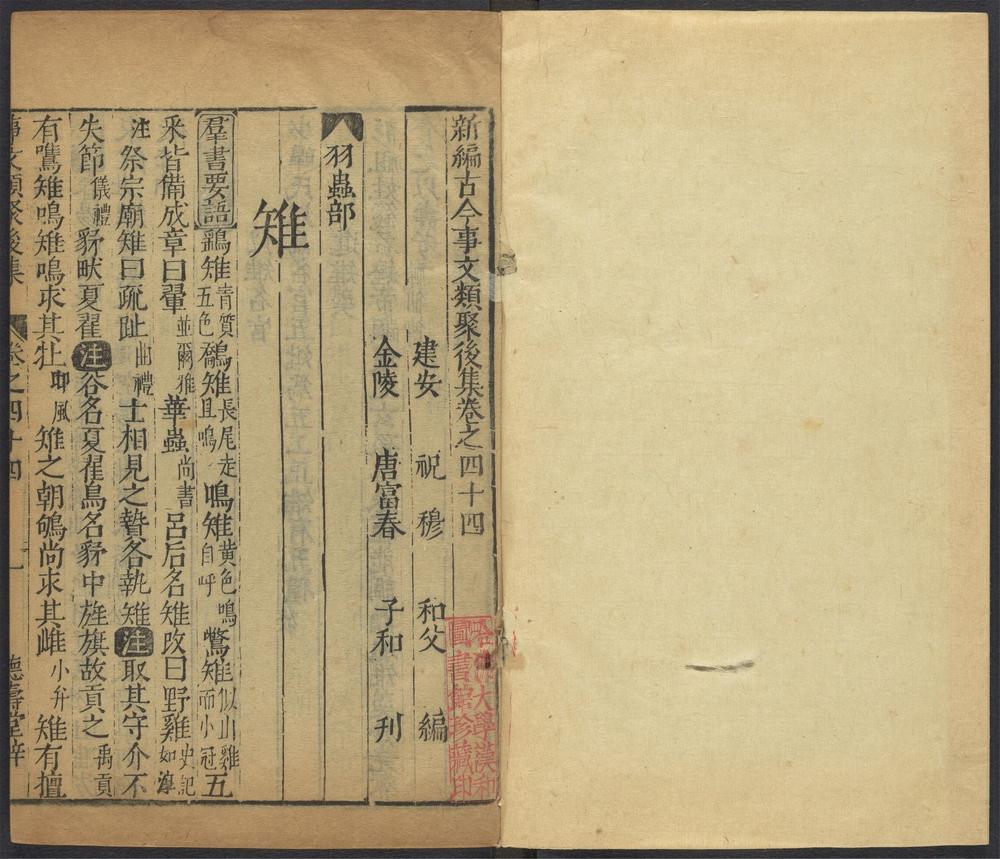 新編古今事文類聚後集卷之四十四
建安 祝 穆 和父 編
金陵 唐富春 子和 刊
羽蟲部
雉
羣書要語鷂雉青質五色鷮雉長尾走且鳴鳪雉黃色鳴自呼鷩雉似山雞而小冠五
采皆備成章曰翬並爾雅華蟲尚書呂后名雉改曰野雞史記如淳
注祭宗廟雉曰疏趾曲禮士相見之贄各執雉注取其守介不
失節儀禮羽畎夏翟注谷名夏翟鳥名羽中旌旗故貢之禹貢
有鷕雉鳴雉鳴求其牡邶風雉之朝鴝尚求其雌小弁雉有擅
事文類聚後集 卷之四十四 一 德壽堂梓
哈佛大學漢和圖書館珍藏印